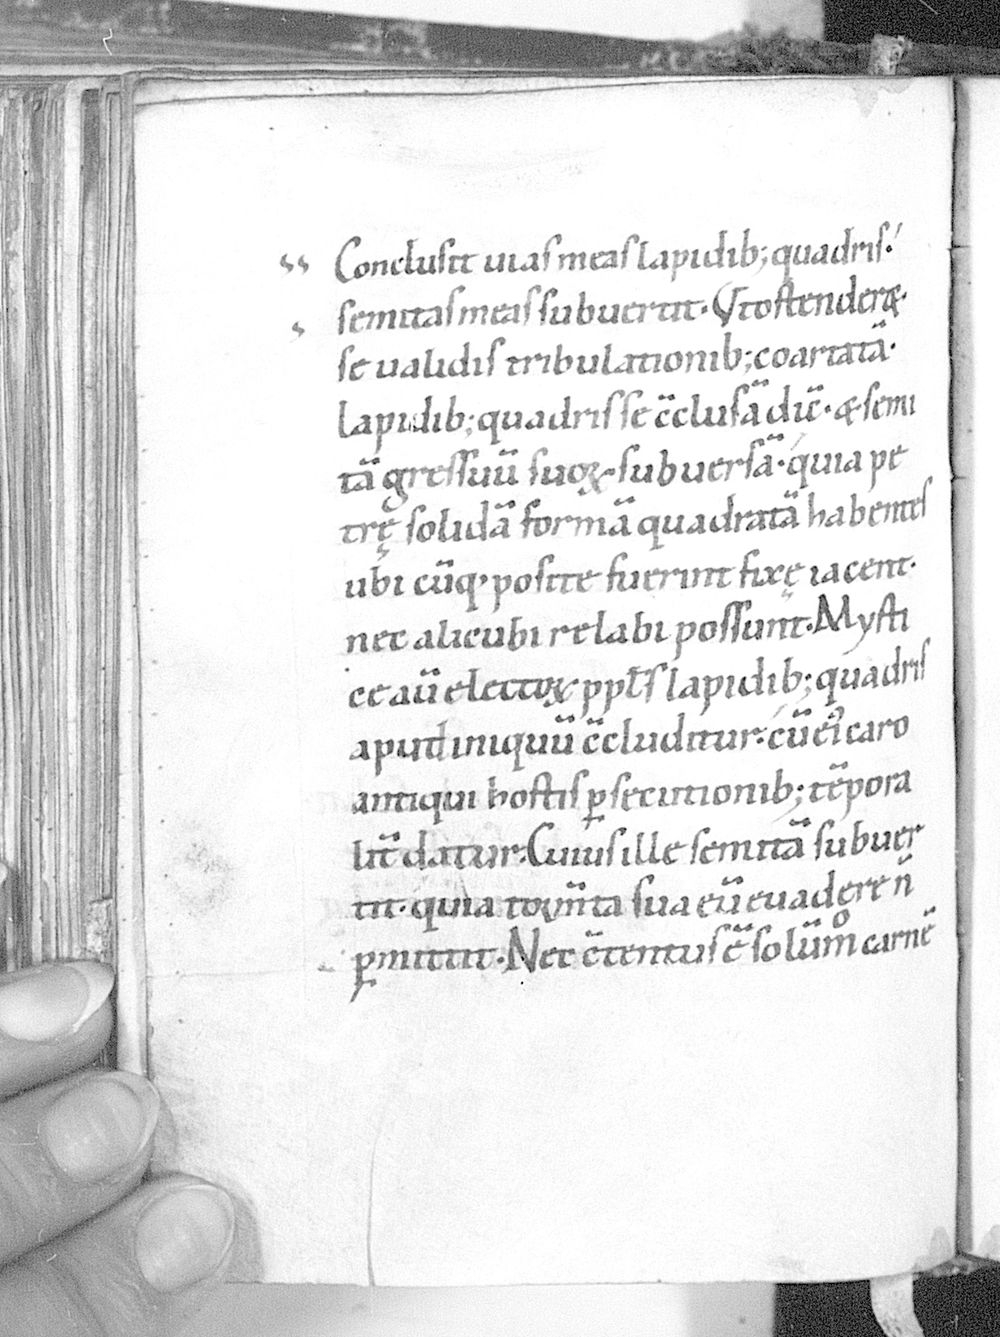 Conclusit uias meas lapidib; quadris.
semitas meas subuertit. Vt ostenderæ.
se ualidis tribulationib; coartatā.
lapidib; quadris se c̄clusā dic̄. & semi
tā gressuū suoꝝ subuersā. quia pe
trę solidā formā quadratā habentes
ubi cūq, posite fuerint fixę iacent.
nec alicubi relabi possunt. Mysti
ce aū electoꝝ pp̄ls lapidib; quadris
apud iniquū c̄cluditur. cū ei caro
antiqui hostis ꝑsecutionib; tēpora
lit̄ datur. Cuius ille semitā subuer
tit. quia tom̄ta sua eū euadere n̄
ꝑmittit. Nec c̄tentus ē solūm̊ carnē